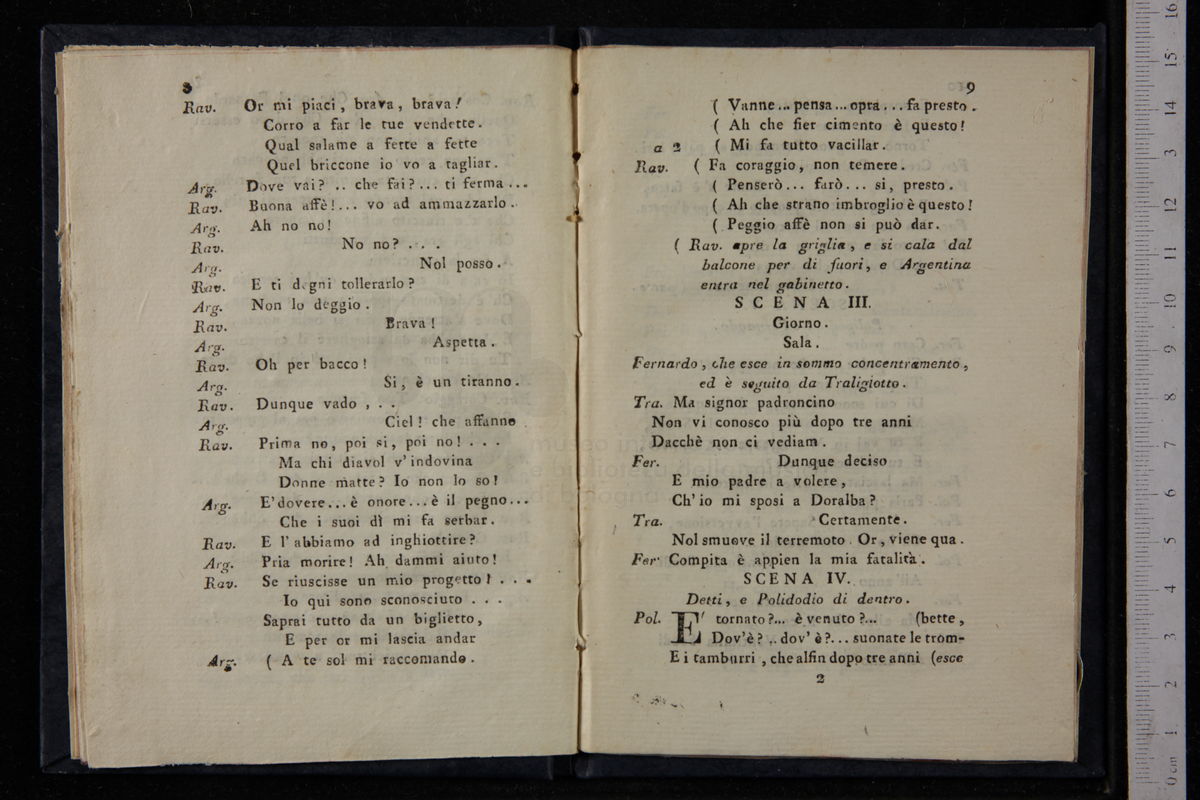 8
Rav. Or mi piaci, brava, brava!
Corro a far le tue vendette.
Qual salame a fette a fette
Quel briccone io vo a tagliar.
Arg. Dove vai? .. che fai?... ti ferma...
Rav. Buona affè!... vo ad ammazzarlo.
Arg. Ah no no!
Rav. No no? ...
Arg. Nol posso.
Rav. E ti degni tollerarlo?
Arg. Non lo deggio.
Rav. Brava!
Arg. Aspetta.
Rav. Oh per bacco!
Arg. Si, è un tiranno.
Rav. Dunque vado, . .
Arg. Ciel! che affanno
Rav. Prima no, poi si, poi no! . . .
Ma chi diavol v'indovina
Donne matte? Io non lo so!
Arg. E'dovere...è onore...è il pegno...
Che i suoi dì mi fa serbar.
Rav. E l'abbiamo ad inghiottire?
Arg. Pria morire! Ah dammi aiuto!
Rav. Se riuscisse un mio progetto! . . .
Io qui sono sconosciuto . . .
Saprai tutto da un biglietto,
E per or mi lascia andar
Arg. ( A te sol mi raccomando.
9
( Vanne... pensa... opra... fa presto.
( Ah che fier cimento è questo!
a 2 ( Mi fa tutto vacillar.
Rav. ( Fa coraggio, non temere.
( Penserò... farò... si, presto.
( Ah che strano imbroglio è questo!
( Peggio affè non si può dar.
( Rav. apre la griglia, e si cala dal
balcone per di fuori, e Argentina
entra nel gabinetto.
SCENA III.
Giorno.
Sala.
Fernardo, che esce in sommo concentramento,
ed è seguito da Traligiotto.
Tra. Ma signor padroncino
Non vi conosco più dopo tre anni
Dacchè non ci vediam.
Fer. Dunque deciso
E mio padre a volere,
Ch'io mi sposi a Doralba?
Tra. Certamente.
Nol smuove il terremoto. Or, viene qua.
Fer. Compita è appien la mia fatalità.
SCENA IV.
Detti, e Polidodio di dentro.
Pol. E' tornato?... è venuto?... (bette,
Dov'è? .. dov'è?... suonate le trom-
E i tamburri, che alfin dopo tre anni (esce
2